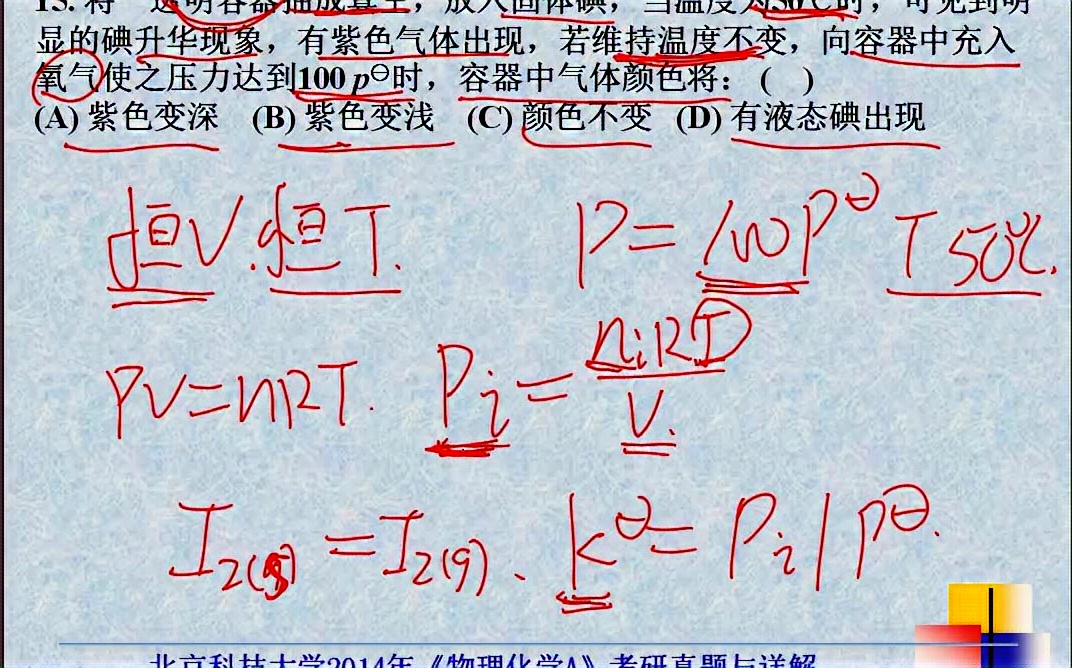 15. 将一透明容器抽成真空，放入固体碘，当温度为50℃时，可见到明
显的碘升华现象，有紫色气体出现，若维持温度不变，向容器中充入
氧气使之压力达到100 p⊖时，容器中气体颜色将：(   )
(A) 紫色变深 (B) 紫色变浅 (C) 颜色不变 (D) 有液态碘出现
恒V.恒T. P=100P⊖ T 50℃.
PV=nRT. Pi=niRT/V.
I2(s)=I2(g). k⊖=Pi/P⊖.
北京科技大学2014年《物理化学A》考研真题与详解